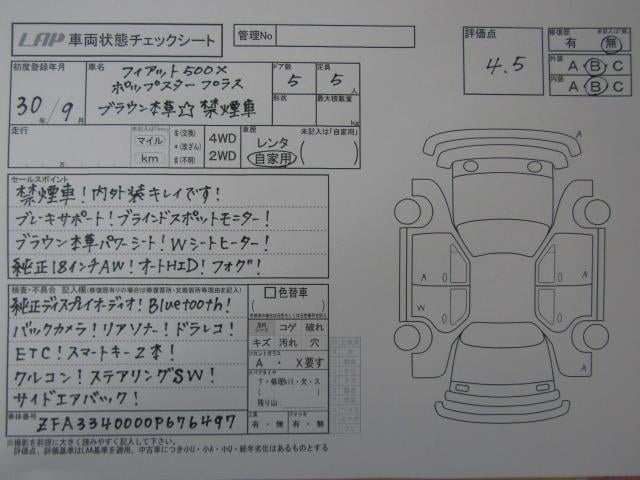 LAP 車両状態チェックシート
管理No
評価点
4.5
修復歴
未記入は「無」
有 無
外装
A B C
内装
A B C
初度登録年月
30年/9月
車名
フィアット500X
ポップスター プラス
ブラウン本革☆禁煙車
ドア数
5
定員
5人
形状
最大積載量
kg
走行
万
未記入は「km」
マイル
km
$(交換)
*(改ざん)
#(不明)
4WD
2WD
車歴
未記入は「自家用」
レンタ
自家用
( )
セールスポイント
禁煙車!内外装キレイです!
ブレーキサポート!ブラインドスポットモニター!
ブラウン本革パワーシート!Wシートヒーター!
純正18インチAW!オートHID!フォグ!
検査・不具合 記入欄(修復歴有りの場合は修復箇所・交換箇所等理由を記入)
純正ディスプレイオーディオ!Bluetooth!
バックカメラ!リアソナー!ドラレコ!
ETC!スマートキー2本!
クルコン!ステアリングSW!
サイドエアバック!
色替車
( )
コゲ 破れ
キズ 汚れ 穴
フロントガラス
A ・ X要す
スペアタイヤ
T・修理kit・欠・ス
( )
残り山:
工具
有・無
ジャッキ
有・無
車体番号
ZFA3340000P676497
※撮影を前提に大きく読みやすく記入して下さい。
評価点、評価基準はLAA基準を適用、中古車につき小U・小A・小U・経年劣化はあるものとする
A
A
A
W
A